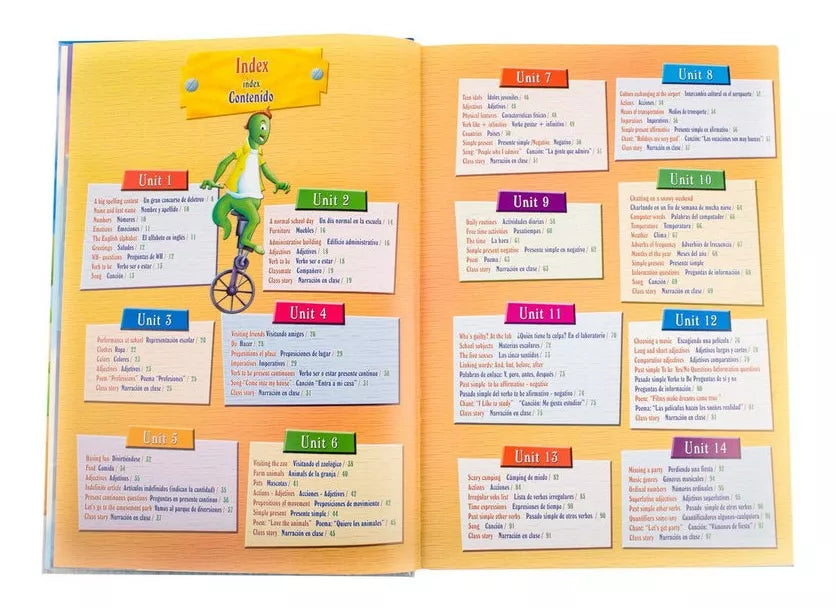 Index
index
Contenido
Unit 1
A big spelling contest Un gran concurso de deletreo / 8
Name and last name Nombre y apellido / 10
Numbers Números / 10
Emotions Emociones / 11
The English alphabet El alfabeto en inglés / 11
Greetings Saludos / 12
WH- questions Preguntas de WH / 12
Verb to be Verbo ser o estar / 13
Song Canción / 13
Unit 2
A normal school day Un día normal en la escuela / 14
Furniture Muebles / 16
Administrative building Edificio administrativo / 16
Adjectives Adjetivos / 18
Verb to be Verbo ser o estar / 18
Classmate Compañero / 19
Class story Narración en clase / 19
Unit 3
Performance at school Representación escolar / 20
Clothes Ropa / 22
Colors Colores / 23
Adjectives Adjetivos / 25
Poem "Professions" Poema "Profesiones" / 25
Class story Narración en clase / 25
Unit 4
Visiting friends Visitando amigos / 26
Do Hacer / 28
Prepositions of place Preposiciones de lugar / 29
Imperatives Imperativos / 29
Verb to be present continuous Verbo ser o estar presente continuo / 30
Song "Come into my house" Canción "Entra a mi casa" / 31
Class story Narración en clase / 31
Unit 5
Having fun Divirtiéndose / 32
Food Comida / 34
Adjectives Adjetivos / 35
Indefinite article Artículos indefinidos (indican la cantidad) / 35
Present continuous questions Preguntas en presente continuo / 36
Let's go to the amusement park Vamos al parque de diversiones / 37
Class story Narración en clase / 37
Unit 6
Visiting the zoo Visitando el zoológico / 38
Farm animals Animales de la granja / 40
Pets Mascotas / 41
Actions - Adjetives Acciones - Adjetivos / 42
Prepositions of movement Preposiciones de movimiento / 42
Simple present Presente simple / 44
Poem: "Love the animals" Poema: "Quiero los animales" / 45
Class story Narración en clase / 45
Unit 7
Teen idols Ídolos juveniles / 46
Adjectives Adjetivos / 48
Physical features Características físicas / 48
Verb like + infinitive Verbo gustar + infinitivo / 49
Countries Países / 50
Simple present Presente simple /Negative Negativo / 50
Song: "People who I admire" Canción: "La gente que admiro" / 51
Class story Narración en clase / 51
Unit 8
Culture exchanging at the airport Intercambio cultural en el aeropuerto / 52
Actions Acciones / 54
Means of transportation Medios de transporte / 54
Imperatives Imperativos / 56
Simple present affirmative Presente simple en afirmativo / 56
Chant: "Holidays are very good" Canción: "Las vacaciones son muy buenas" / 57
Class story Narración en clase / 57
Unit 9
Daily routines Actividades diarias / 58
Free time activities Pasatiempos / 60
The time La hora / 61
Simple present negative Presente simple en negativo / 62
Poem Poema / 63
Class story Narración en clase / 63
Unit 10
Chatting on a snowy weekend
Charlando en un fin de semana de mucha nieve / 64
Computer words Palabras del computador / 66
Temperature Temperatura / 66
Weather Clima / 67
Adverbs of frequency Adverbios de frecuencia / 67
Months of the year Meses del año / 68
Simple present Presente simple
Information questions Preguntas de información / 68
Song Canción / 69
Class story Narración en clase / 69
Unit 11
Who's guilty? At the lab ¿Quién tiene la culpa? En el laboratorio / 70
School subjects Materias escolares / 72
The five senses Los cinco sentidos / 73
Linking words: And, but, before, after
Palabras de enlace: Y, pero, antes, después / 73
Past simple to be affirmative - negative
Pasado simple del verbo to be afirmativo - negativo / 74
Chant: "I Like to study" "Canción: Me gusta estudiar" / 75
Class story Narración en clase / 75
Unit 12
Choosing a movie Escogiendo una película / 76
Long and short adjectives Adjetivos largos y cortos / 78
Comparative adjectives Adjetivos comparativos / 79
Past simple To be Yes/No Questions Information questions
Pasado simple Verbo to Be Preguntas de sí y no
Preguntas de información / 80
Poem: "Films make dreams come true"
Poema: "Las películas hacen los sueños realidad" / 81
Class story Narración en clase / 81
Unit 13
Scary camping Cámping de miedo / 82
Actions Acciones / 84
Irregular verbs list Lista de verbos irregulares / 85
Time expressions Expresiones de tiempo / 90
Past simple other verbs Pasado simple de otros verbos / 90
Song Canción / 91
Class story Narración en clase / 91
Unit 14
Missing a party Perdiendo una fiesta / 92
Music genres Géneros musicales / 94
Ordinal numbers Números ordinales / 95
Superlative adjectives Adjetivos superlativos / 95
Past simple other verbs Pasado simple de otros verbos / 96
Quantifiers some/any Cuantificadores algunos-cualquiera / 96
Chant: "Let's get party" Canción: "Vámonos de fiesta" / 97
Class story Narración en clase / 97